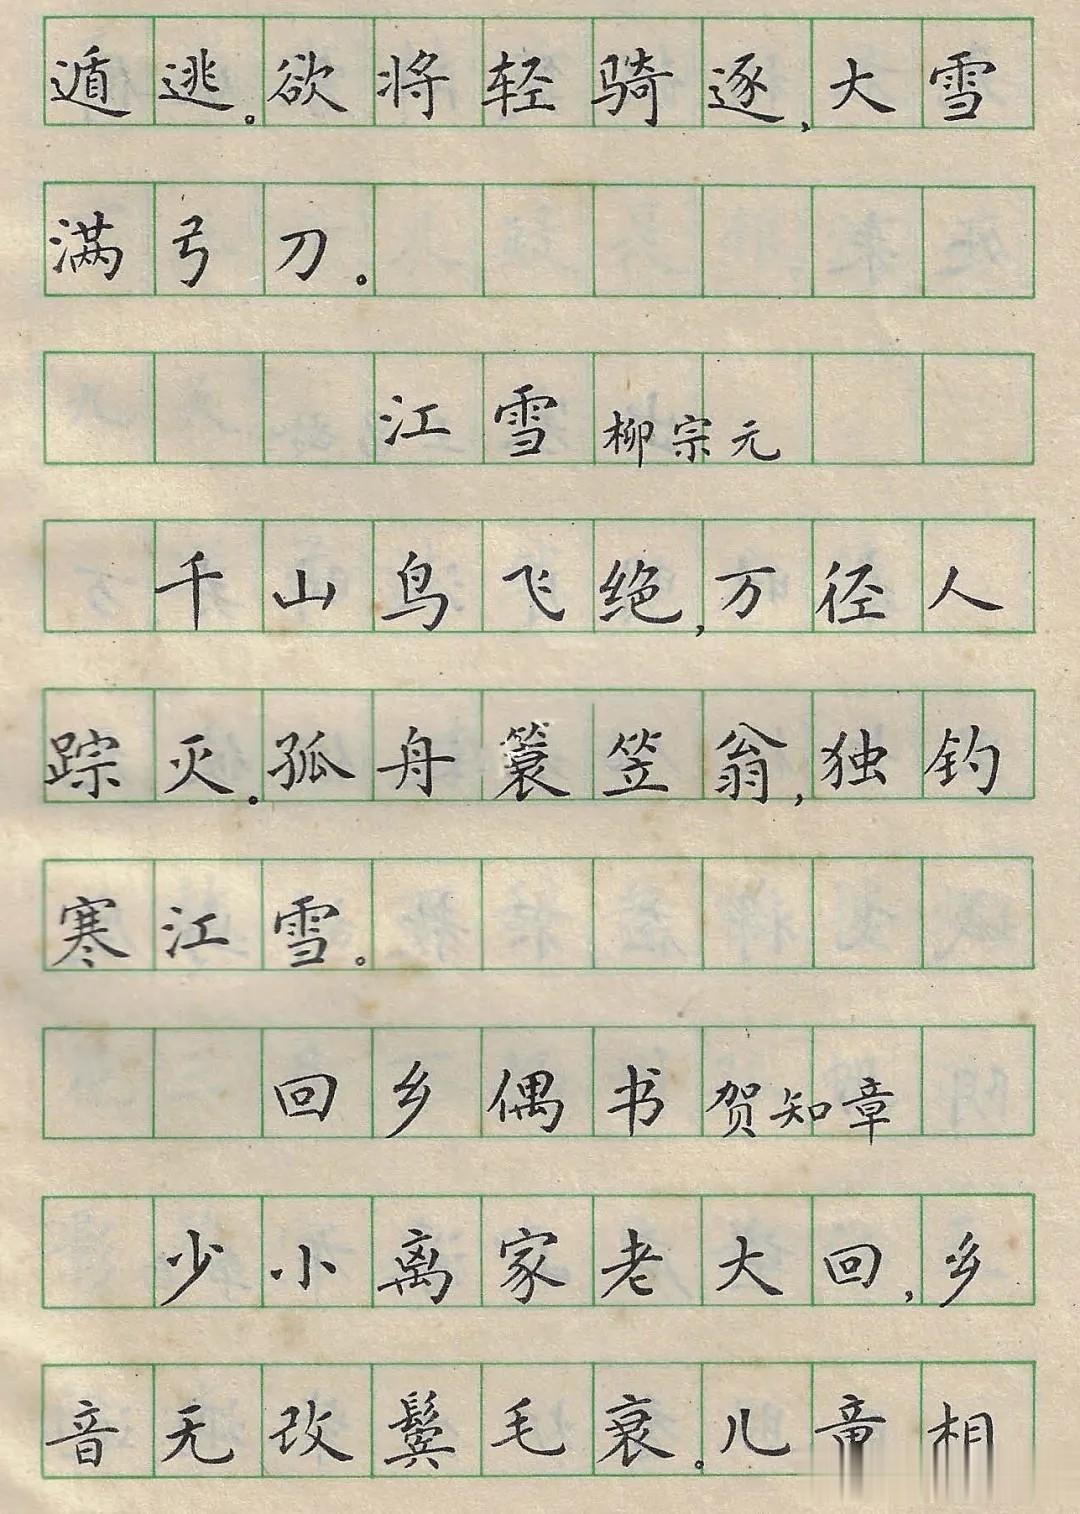 遁逃。欲将轻骑逐,大雪
满弓刀。
江雪 柳宗元
千山鸟飞绝,万径人
踪灭。孤舟蓑笠翁,独钓
寒江雪。
回乡偶书 贺知章
少小离家老大回,乡
音无改鬓毛衰。儿童相